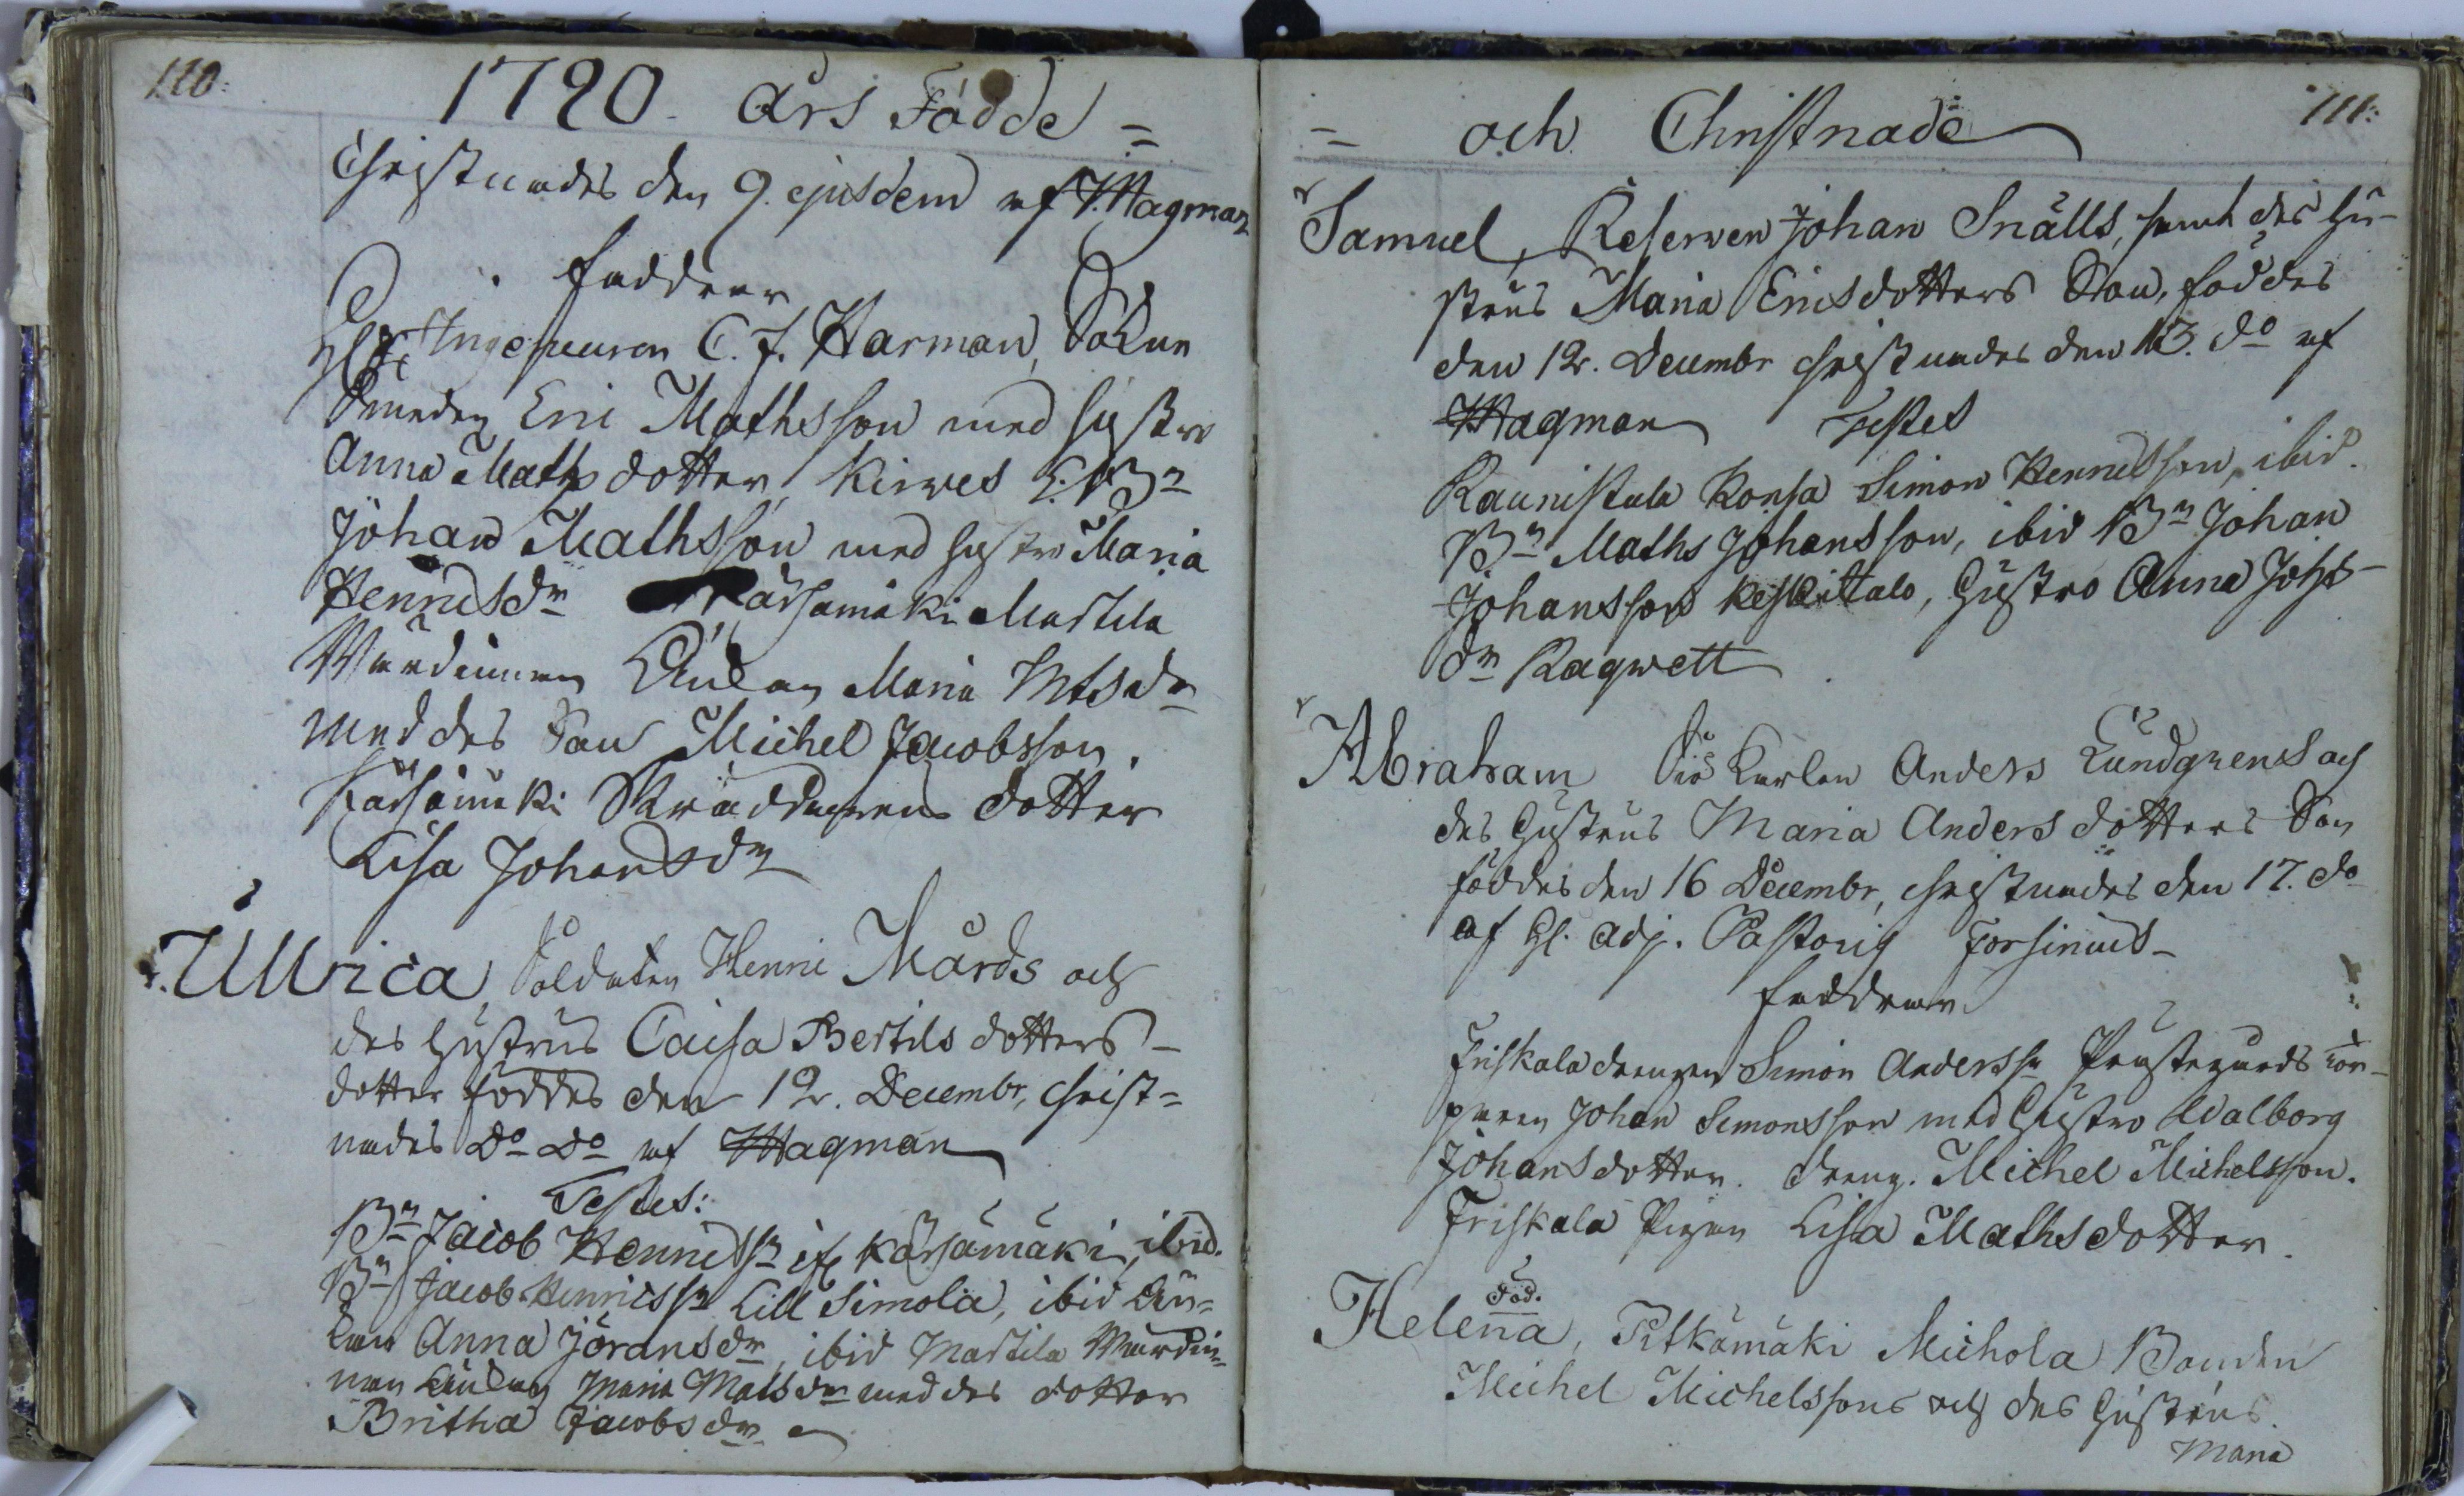 110:
1790. års Födde =
Christnades den 9. ejusdem af Wagman
Faddrar
H:r Ingenieuren C. J. Harman, Sokne
Smeden Eric Mathsson med hustro
Anna Mathsdotter, Kirves
Johan Mathsson med hustro Maria
Henricsd:r Kärsämäki Martila
Värdinnan Enkan Maria Matsd:r
med des Son Michel Jacobsson,
Kärsämäki Skräddarens dotter
Lisa Johansd:r
Ullrica, Soldaten Henric Mårds och
des hustrus Caisa Bertils dotters
dotter föddes den 12. Decembr, christ=
nades D:o D:o af Wagman
Testes:
B:n Jacob Henricss:n if: Kärsämäki, ibid.
B:n Jacob Henricss:n Lill Simola, ibid En=
kan Anna Jöransd:r, ibid Martila Värdin=
nan Enkan Maria Matsd:r med des dotter
Britha Jacobsd:r
111:
= och Christnade
Samuel, Reserven Johan Snälls, samt des Hu-
strus Maria Ericsdotters Son, föddes
den 12. Decembr christnades den 13. d:o af
Wagman Testes
Raunistula Konsa Simon Henricsson, ibid.
B:n Maths Johansson, ibid B:n Johan
Johansson Keskitalo, Hustro Anna Johs-
d:r Ragwett
Abraham Siö Karlen Anders Lundgrens och
des Hustrus Maria Anders dotters Son
föddes den 16 Decembr, christnades den 17. do
af H. Adj. Pastoris Forsinius-
Faddrar
Friskala drengen Simon Anderss:n Prästegårds tor-
paren Johan Simonsson med Hustro Walborg
Johansdotter. dreng. Michel Michelsson.
Friskala Pigan Lisa Mathsdotter.
Föd.
Helena, Pitkämäki Michola Bonden
Michel Michelssons och des Hustrus
Maria